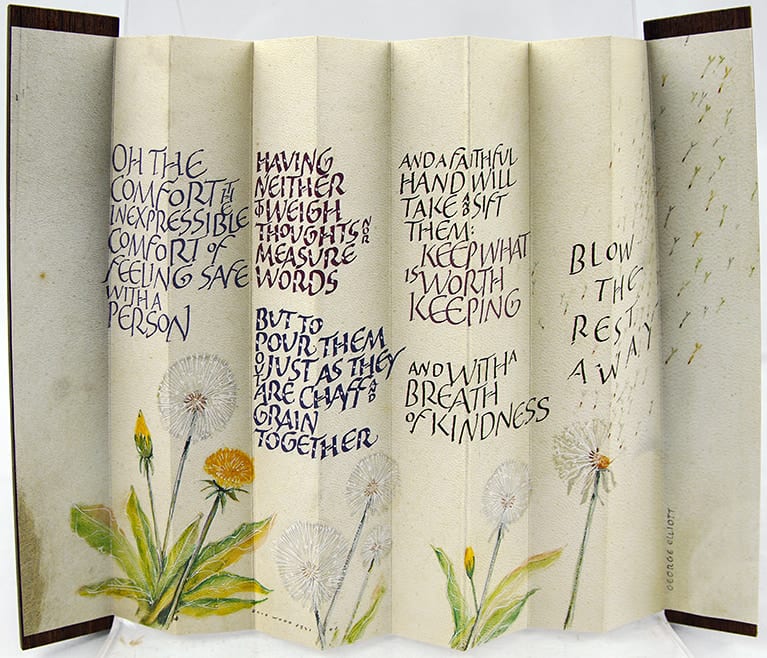 OH THE
COMFORT THE
INEXPRESSIBLE
COMFORT OF
FEELING SAFE
WITH A
PERSON
HAVING
NEITHER
TO WEIGH
THOUGHTS NOR
MEASURE
WORDS
BUT TO
POUR THEM
OUT JUST AS THEY
ARE CHAFF AND
GRAIN
TOGETHER
AND A FAITHFUL
HAND WILL
TAKE AND SIFT
THEM:
KEEP WHAT
IS WORTH
KEEPING
AND WITH A
BREATH
OF KINDNESS
BLOW
THE
REST
AWAY
GEORGE ELLIOTT